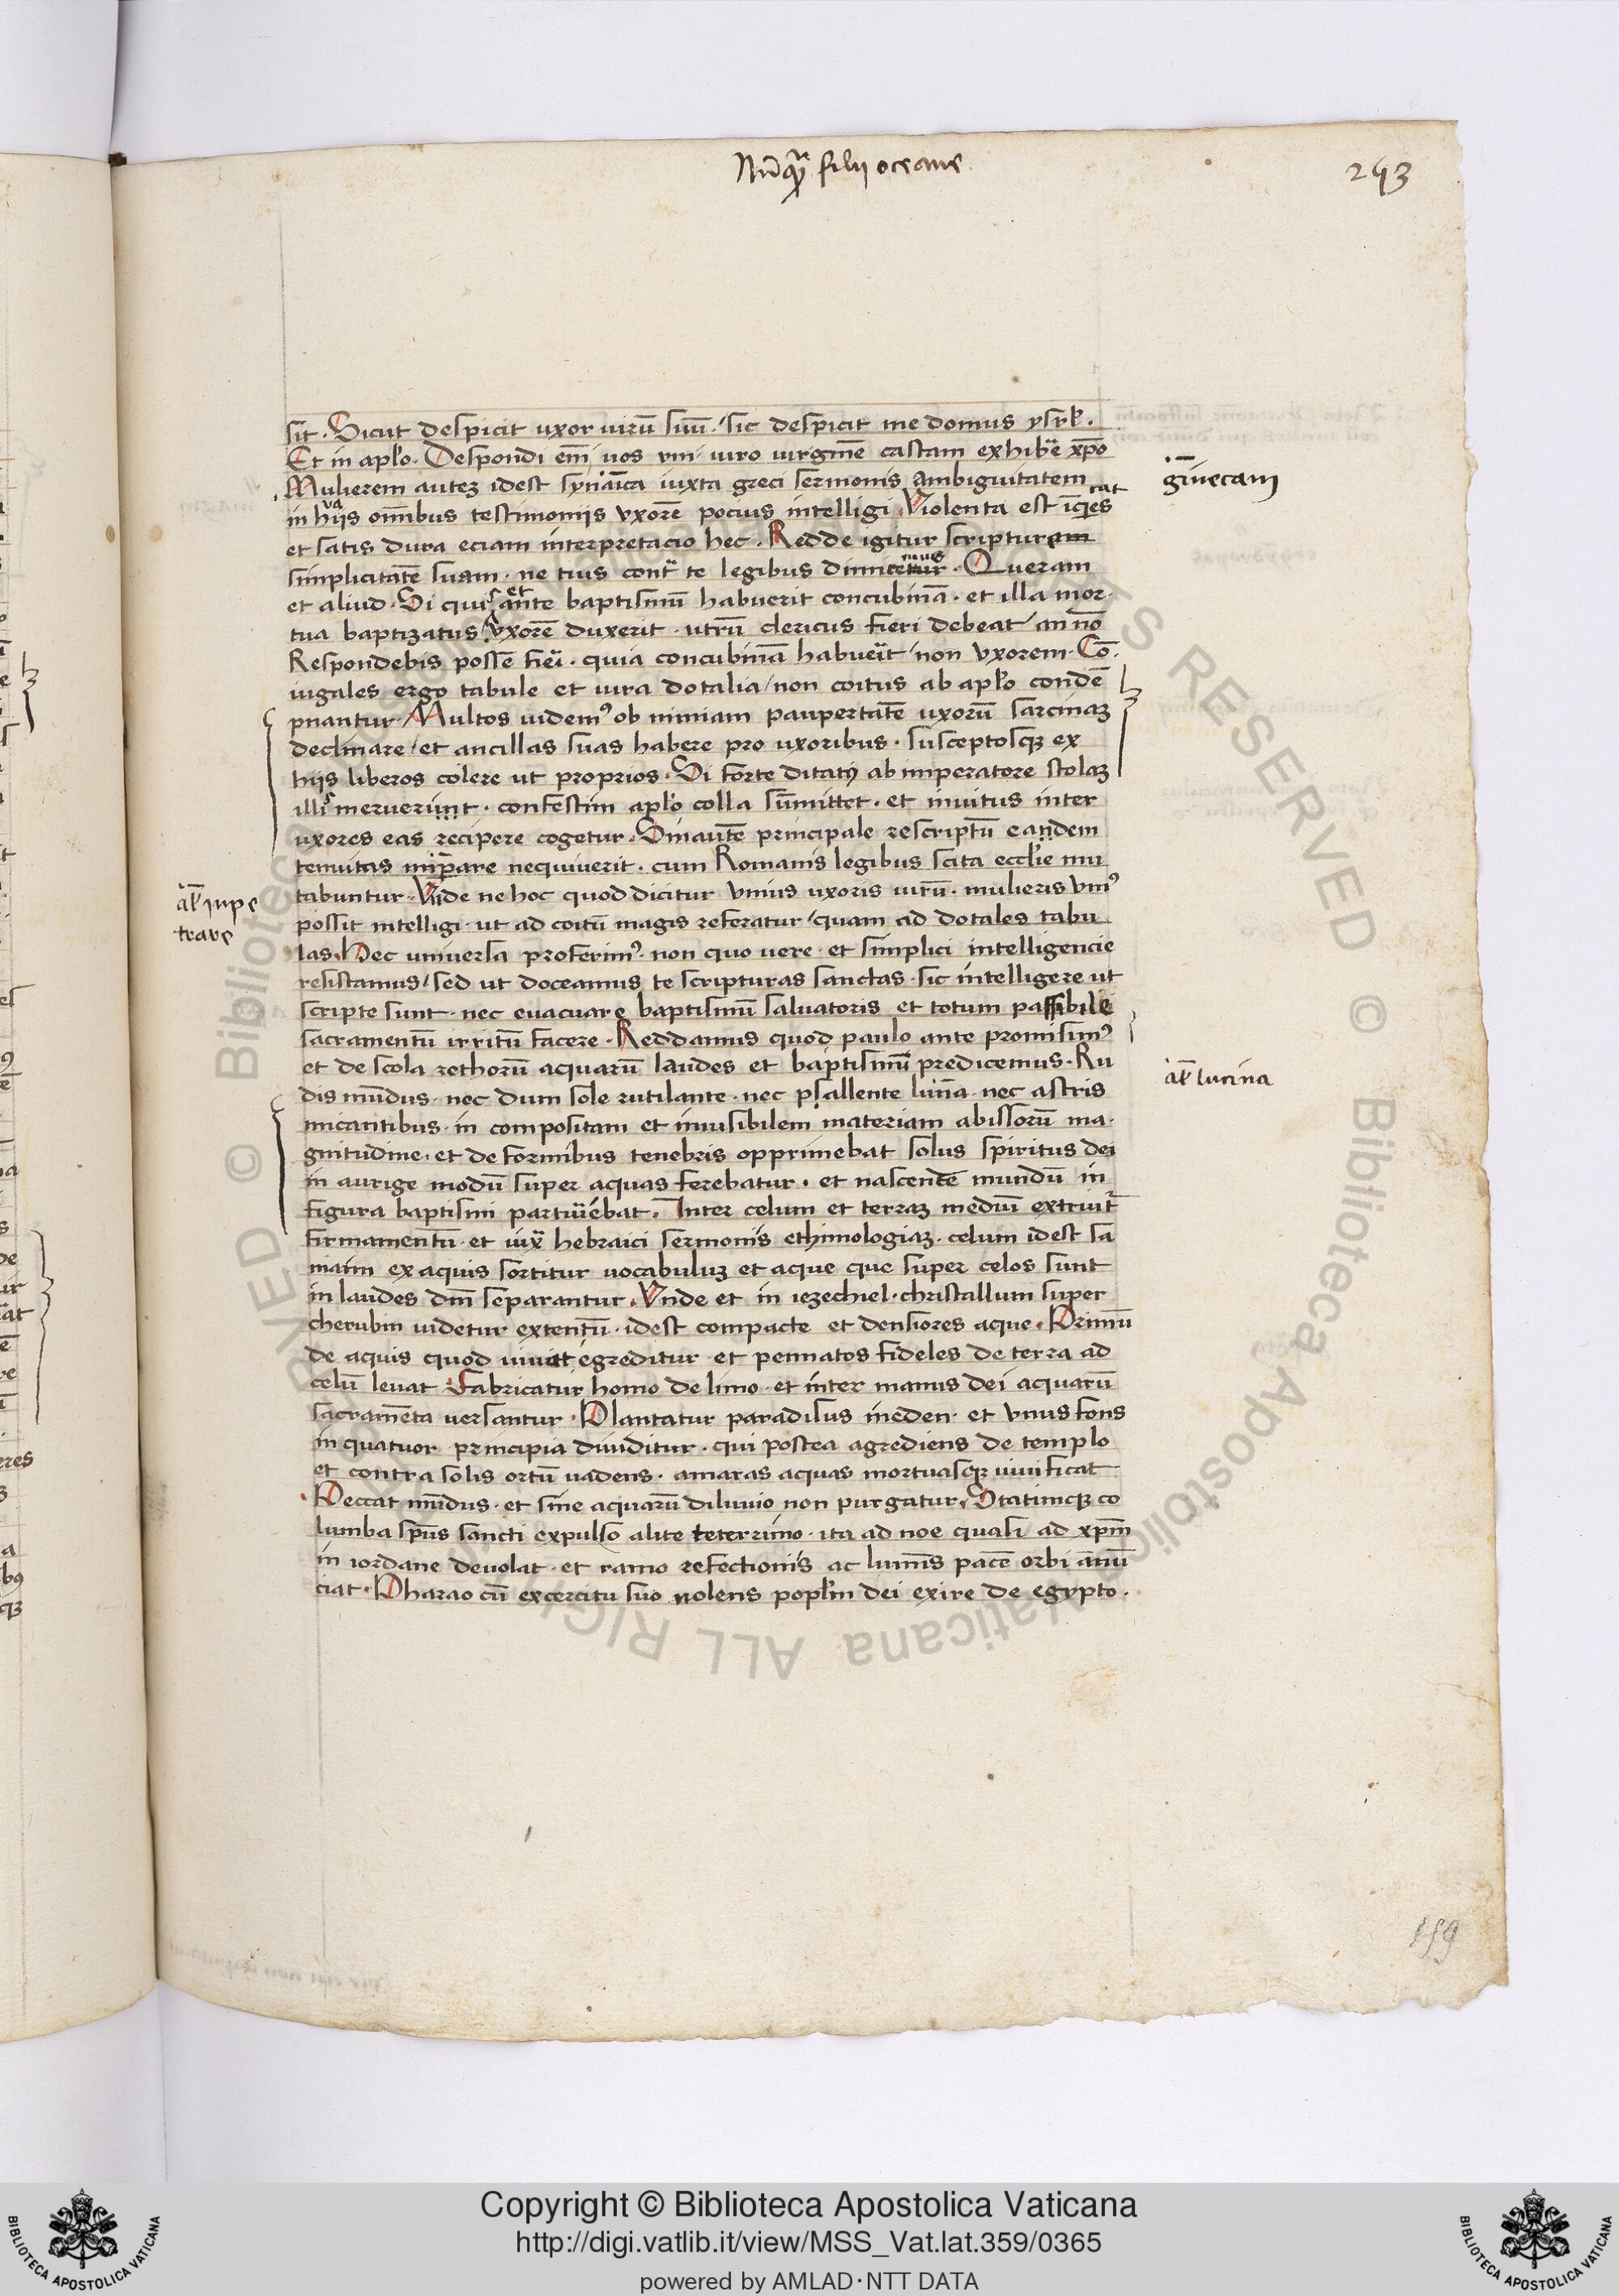 Nūqᷓ filii oceane
293
sit. Sicut despicit uxor uirū suū / sic despicit me domus ysrl̄.
Et in apl̄o. Despondi em̄ uos vni uiro uirginē castam exhibe͛ xp̄o
Mulierem autez idest synaica iuxta greci sermonis ambiguitatem
in hiis om̄ibus testimoniis vxorē pocius intelligi. Violenta est
et satis dura eciam interpretacio hec. Redde igitur scripturam
simplicitatē suam. ne tius contᷓ te legibus dimicemus. Queram
et aliud. Si quis ante baptismū habuerit concubinā. et illa mor
tua baptizatus vxorē duxerit. utrū clericus fieri debeat / an nō
Respondebis posse fieri. quia concubinā habuerit / non vxorem. Cō
iugales ergo tabule et iura dotalia / non coitus ab apl̄o condē
pnantur. Multos uidemꝰ ob nimiam paupertatē uxorū sarcinaz
declinare / et ancillas suas habere pro uxoribus. susceptosqꝫ ex
hiis liberos colere ut proprios. Si forte ditati ab imperatore stolaz
illis meruerunt. confestim apl̄o colla sūmittet. et inuitus inter
uxores eas recipere cogetur. Sin autē principale rescriptū eandem
tenuitas impᷓare nequiuerit. cum Romanis legibus scita eccl̄ie mu
tabuntur. Vide ne hoc quod dicitur vnius uxoris uirū. mulieris vniꝰ
possit intelligi. ut ad coitū magis referatur / quam ad dotales tabu
las. Hec uniuersa proferimꝰ. non quo uere et simplici intelligencie
resistamus / sed ut doceamus te scripturas sanctas. sic intelligere ut
scripte sunt. nec euacuare baptismū saluatoris et totum passibile
sacramentū irritū facere. Reddamus quod paulo ante promisimꝰ
et de scola rethorū aquarū laudes et baptismū predicemus. Ru
dis mūdus. nec dum sole rutilante. nec psallente luna. nec astris
micantibus. in compositam et inuisibilem materiam abissorū ma
gnitudine. et deformibus tenebris opprimebat solus spiritus dei
in aurige modū super aquas ferebatur. et nascentē mundū in
figura baptismi parturiebat. Inter celum et terraz mediū extruit̃
firmamentū. et iuxᷓ hebraici sermonis ethimologiaz. celum idest sa
maim ex aquis sortitur uocabuluz et aque que super celos sunt
in laudes dn̄i separantur. Vnde et in iezechiel. christallum super
cherubin uidetur extentū. idest compacte et densiores aque. Primū
de aquis quod uiuit egreditur. et pennatos fideles de terra ad
celū leuat. Fabricatur homo de limo. et inter manus dei aquarū
sacramēta uersantur. Plantatur paradisus ineden. et vnus fons
in quatuor principia diuiditur. qui postea agrediens de templo
et contra solis ortū uadens. amaras aquas mortuasqꝫ uiuificat
Peccat mūdus. et sine aquarū diluuio non purgatur. Statimqꝫ co
lumba sp̄us sancti expulso alite teterrimo. ita ad noe quasi ad xp̄m
in iordane deuolat. et ramo refectionis ac luminis pacē orbi ānū
ciat. Pharao cū exercitu suo nolens popl̄m dei exire de egypto.
al̄ impe
trare
al̄ lucina
159
Copyright © Biblioteca Apostolica Vaticana
http://digi.vatlib.it/view/MSS_Vat.lat.359/0365
powered by AMLAD·NTT DATA
BIBLIOTECA APOSTOLICA VATICANA
BIBLIOTECA APOSTOLICA VATICANA